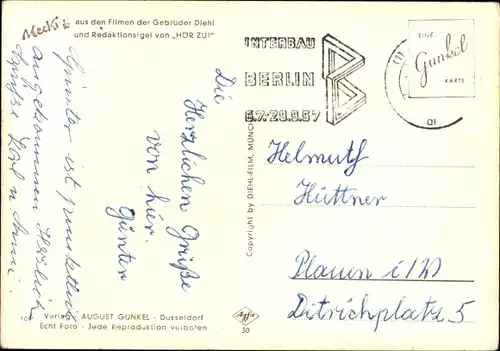 Mecki
aus den Filmen der Gebrüder Diehl
und Redaktionsigel von „HÖR ZU!"
Günter ist pünktlich
angekommen Herzlich
Grüße Lisl u.
Die
Herzlichen Grüße
von hier.
Günter
Verlag AUGUST GUNKEL - Düsseldorf
Echt Foto - Jede Reproduktion verboten
Copyright by DIEHL-FILM, MÜNCH
Agfa
50
INTERBAU
BERLIN
6.7.-29.9.57
EINE
Gunkel
KARTE
Helmuth
Hüttner
Plauen i/V
Ditrichplatz 5